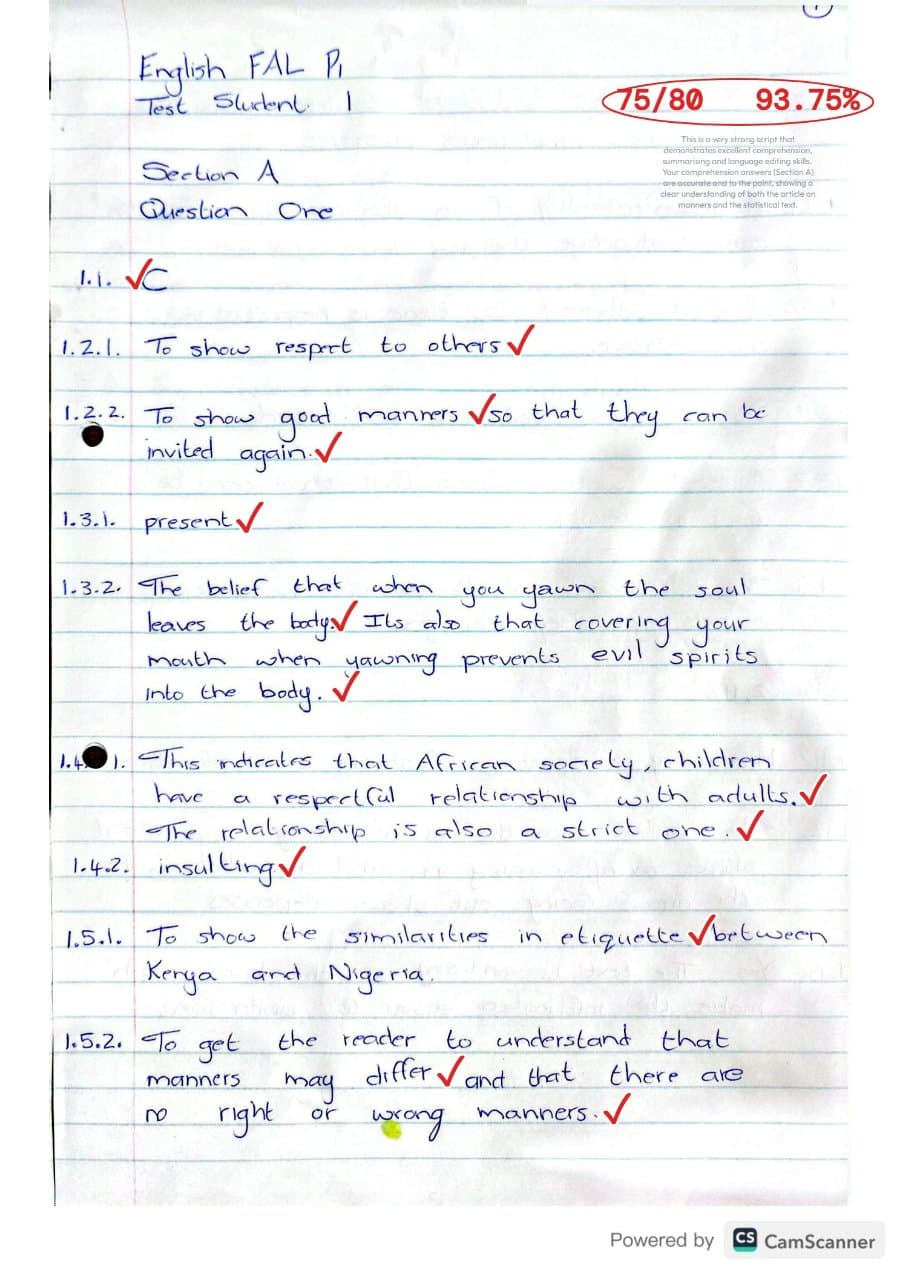 1
English FAL P1
Test Student 1
75/80 93.75%
This is a very strong script that
demonstrates excellent comprehension,
summarising and language editing skills.
Your comprehension answers (Section A)
are accurate and to the point, showing a
clear understanding of both the article on
manners and the statistical text.
Section A
Question One
1.1. C
1.2.1. To show respect to others
1.2.2. To show good manners so that they can be
invited again.
1.3.1. present
1.3.2. The belief that when you yawn the soul
leaves the body. Its also that covering your
mouth when yawning prevents evil spirits
into the body.
1.4.1. This indicates that African society, children
have a respectful relationship with adults.
The relationship is also a strict one.
1.4.2. insulting
1.5.1. To show the similarities in etiquette between
Kenya and Nigeria.
1.5.2. To get the reader to understand that
manners may differ and that there are
no right or wrong manners.
Powered by CS CamScanner